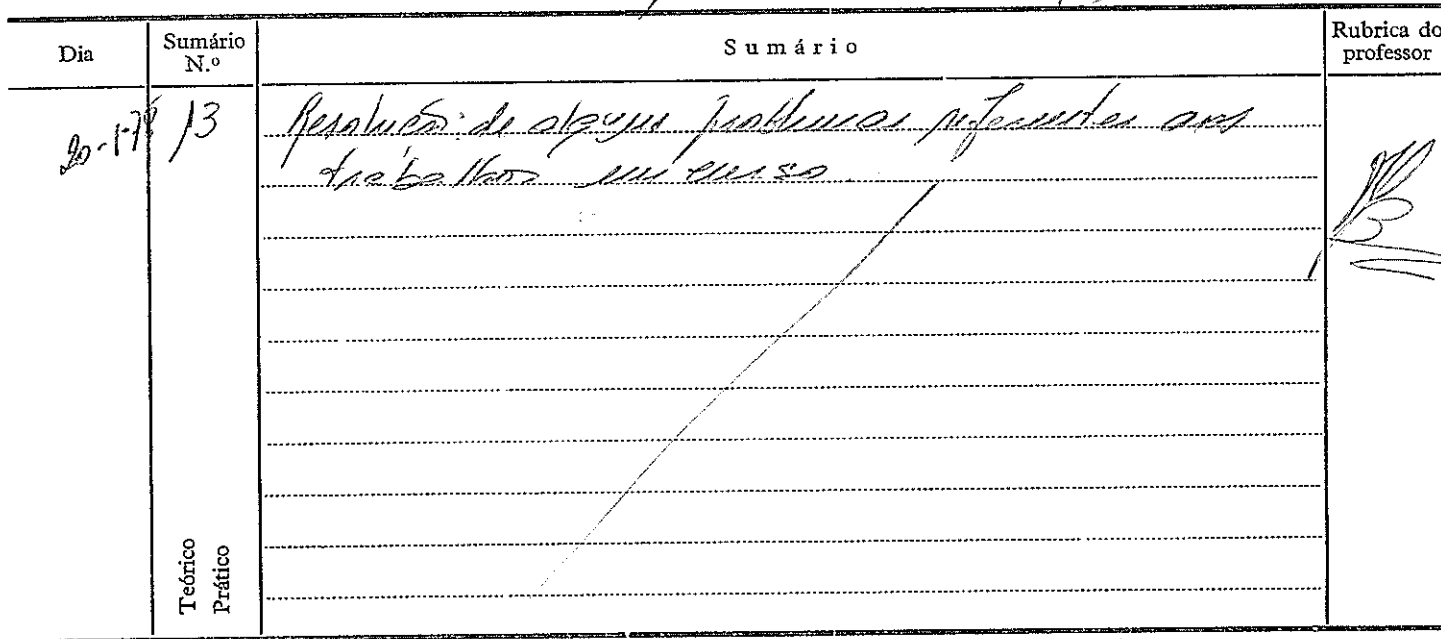 Dia
Sumário N.º
Sumário
Rubrica do professor
20-1-78
13
Resolução de alguns problemas referentes aos
trabalhos em curso
Teórico
Prático